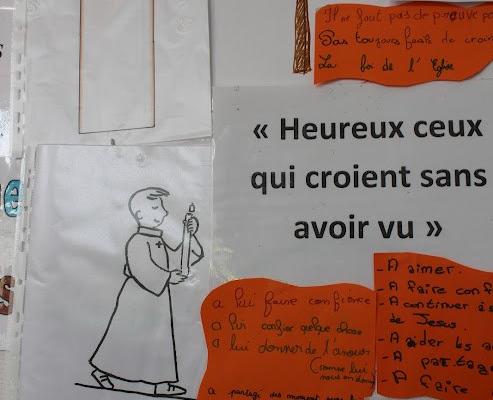 Il ne faut pas de preuve
Pas toujours facile de
La foi de l'Eglise
« Heureux ceux
qui croient sans
avoir vu »
a lui faire confience
a lui confier quelque chose
a lui donner de l'amour
(comme lui
nous en donne
a partagé des moment avec
- A aimer.
- A faire conf
- A continuer à s
de Jesus.
- A aider les a
- A partage
- A faire